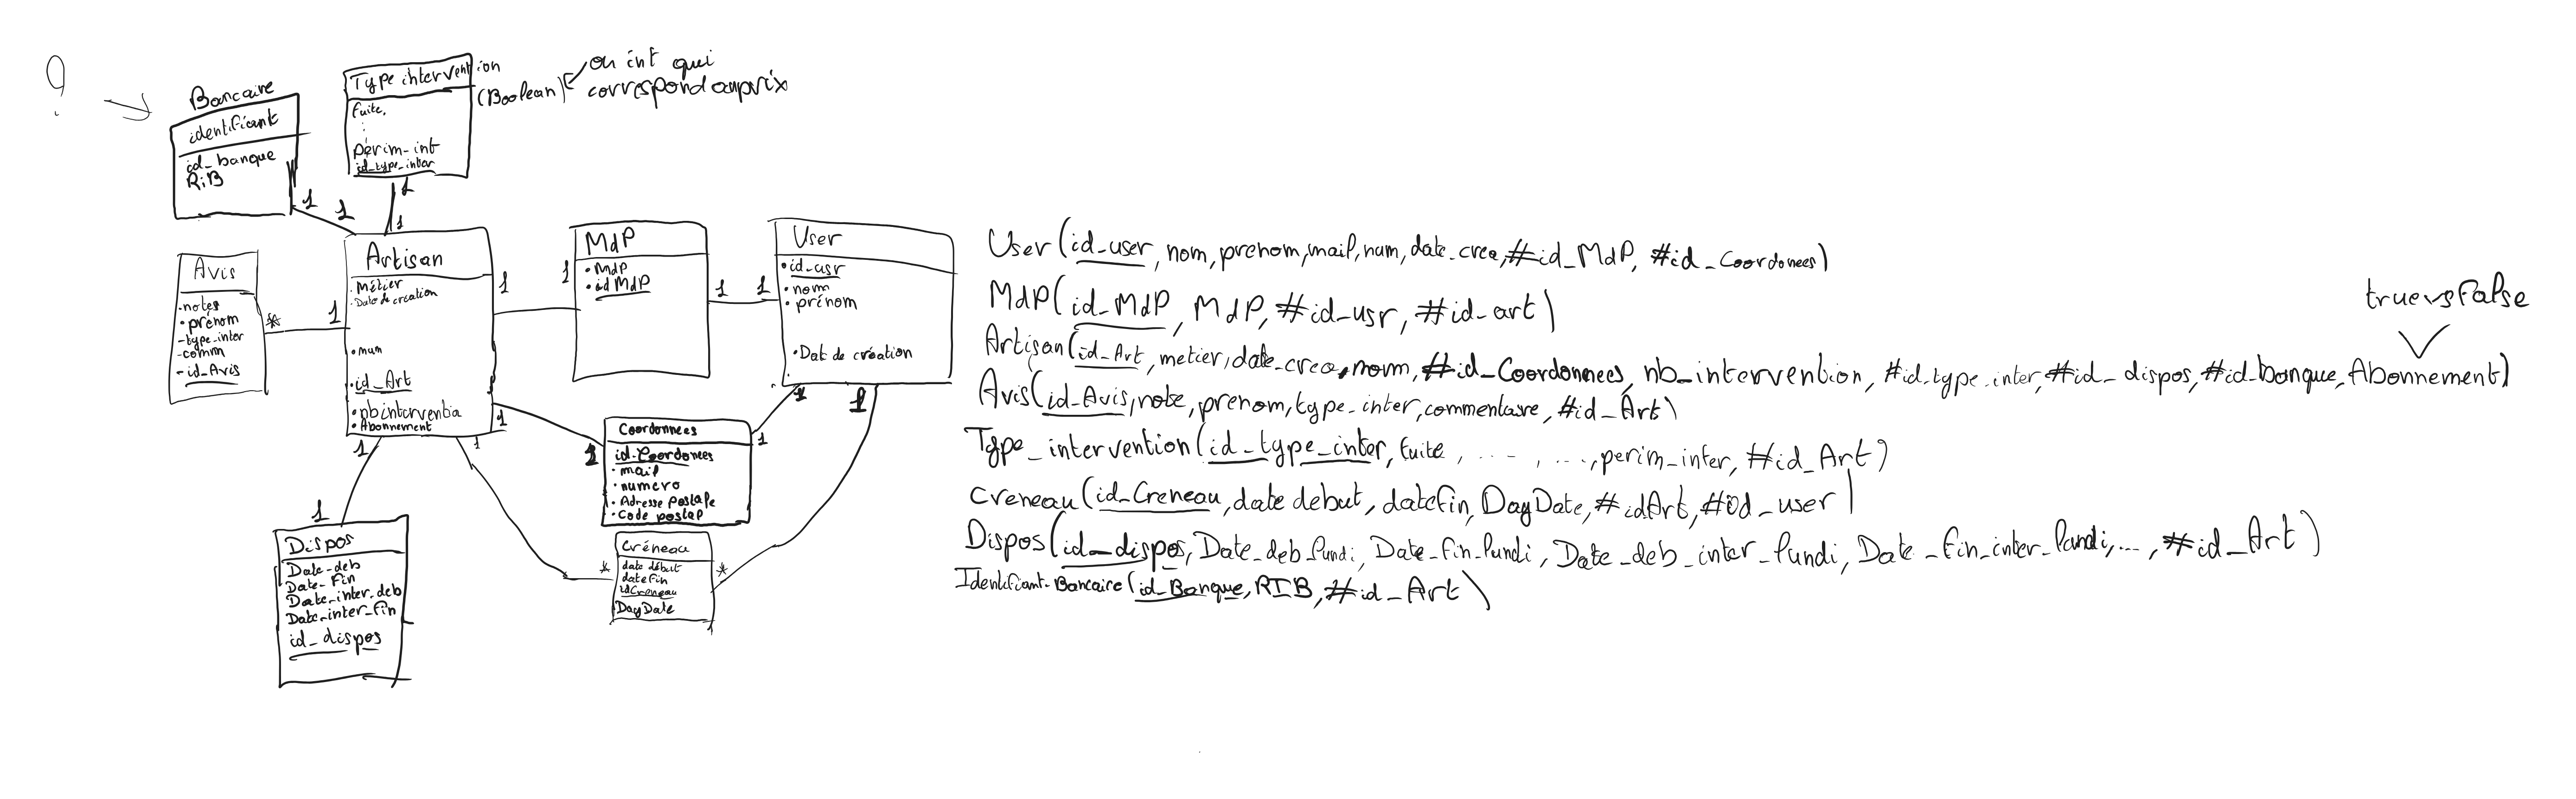 ?
Bancaire
identifiant
id_banque
RiB
Type intervention
(Boolean)
ou int qui
correspond au prix
fuite,
périm-int
id_type_inter
1
1
1
1
Avis
•notes
•prénom
-type_inter
-comm
-id_Avis
*
1
Artisan
•Métier
•Date de creation
•num
•id_Art
•nb interventio
•Abonnement
1
1
MdP
•MdP
•id MdP
1
1
User
•id_usr
•nom
•prénom
•Dat de création
1
1
1
1
1
1
Coordonnees
id_Coordonees
•mail
•numero
•Adresse postale
•Code postal
1
1
Dispos
Date_deb
Date_Fin
Date_inter_deb
Date_inter_fin
id_dispos
1
Créneau
date début
datefin
idCreneau
DayDate
*
*
User(id_user, nom, prenom, mail, num, date_crea, #id_MdP, #id_Coordonees)
MdP(id_MdP, MdP, #id_usr, #id_art)
true vs False
Artisan(id_Art, metier, date_crea, nom, #id_Coordonnees, nb_intervention, #id_type_inter, #id_dispos, #id_banque, Abonnement)
Avis(id_Avis, note, prenom, type_inter, commentaire, #id_Art)
Type_intervention(id_type_inter, fuite, ...., ...., perim_inter, #id_Art)
Creneau(id_Creneau, date debut, datefin, DayDate, #idArt, #id_user)
Dispos(id_dispos, Date_deb_lundi, Date_fin_lundi, Date_deb_inter_lundi, Date_fin_inter_lundi, ..., #id_Art)
Identifiant-Bancaire(id_Banque, RIB, #id_Art)